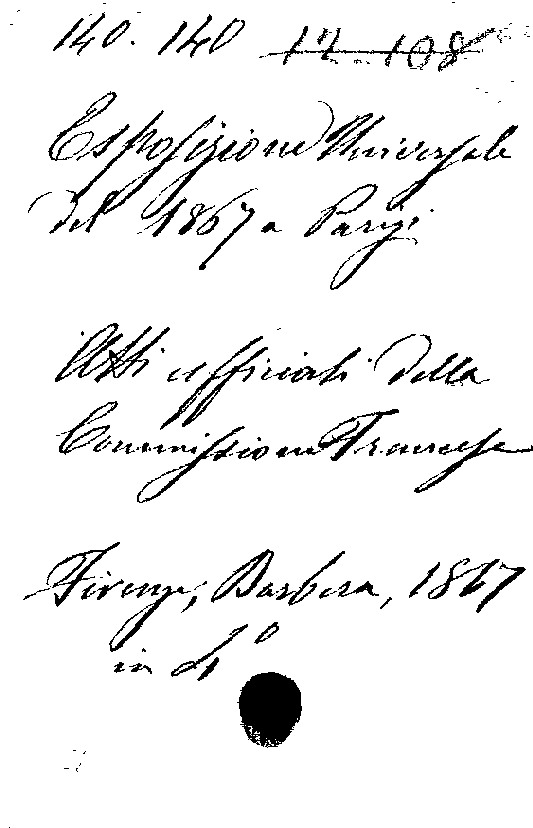 140. 140 12. 108
Esposizione Universale
del 1867 a Parigi
Atti ufficiali della
Commissione Francese
Firenze, Barbera, 1867
in 4°